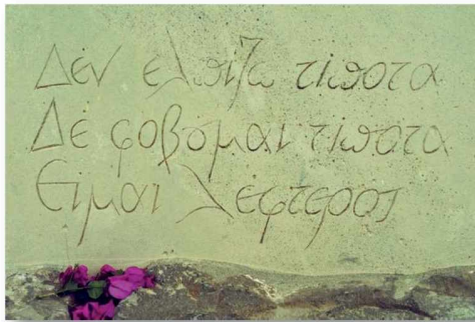 Δέν ελπίζω τίποτα
Δέ φοβούμαι τίποτα
Είμαι λέφτερος